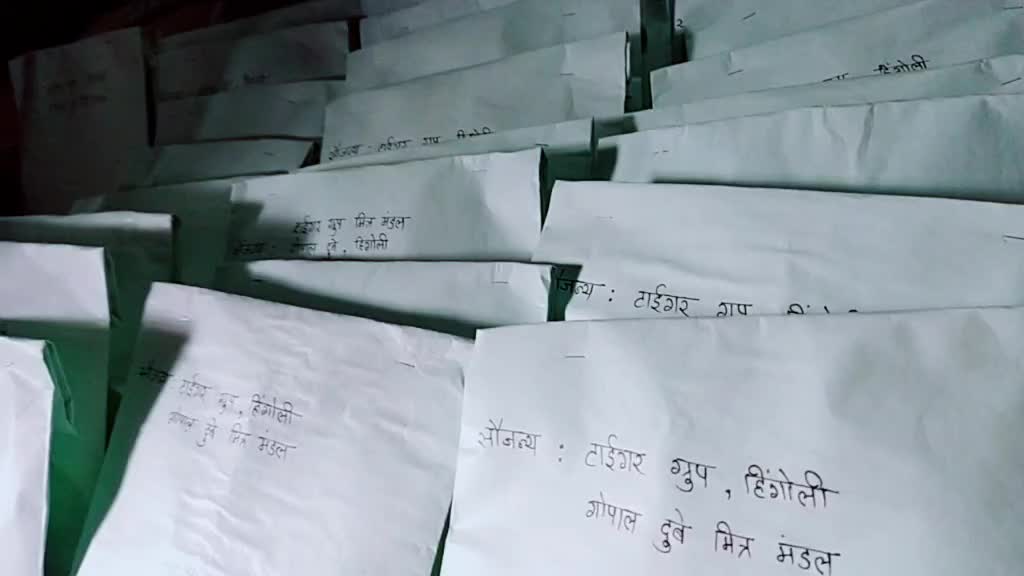 हिंगोली
सौजन्य : टाईगर ग्रुप
टाईगर ग्रुप मित्र मंडल
सौजन्य : गोपाल दुबे, हिंगोली
सौजन्य : टाईगर ग्रुप
सौजन्य टाईगर ग्रुप, हिंगोली
गोपाल दुबे मित्र मंडल
सौजन्य : टाईगर ग्रुप, हिंगोली
गोपाल दुबे मित्र मंडल